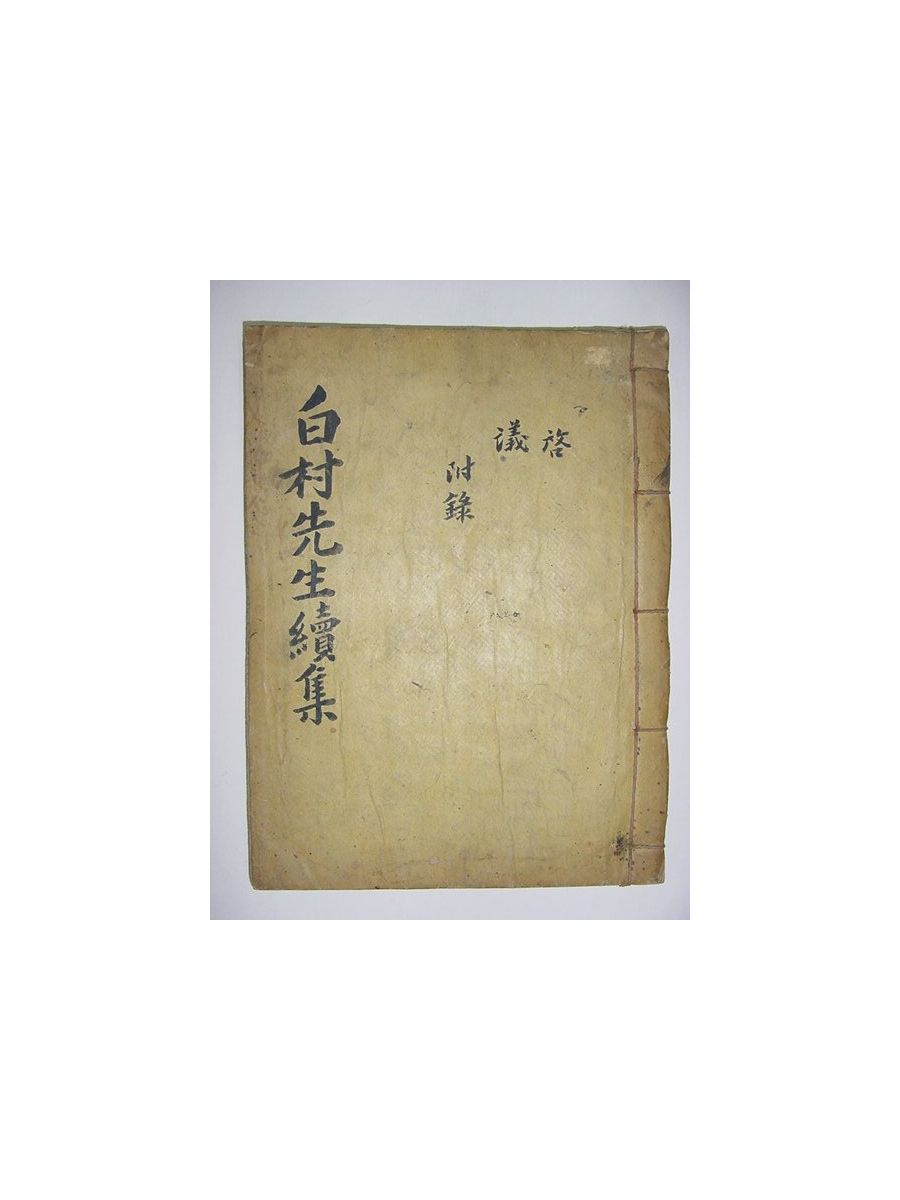 啓
議
附錄
白村先生續集